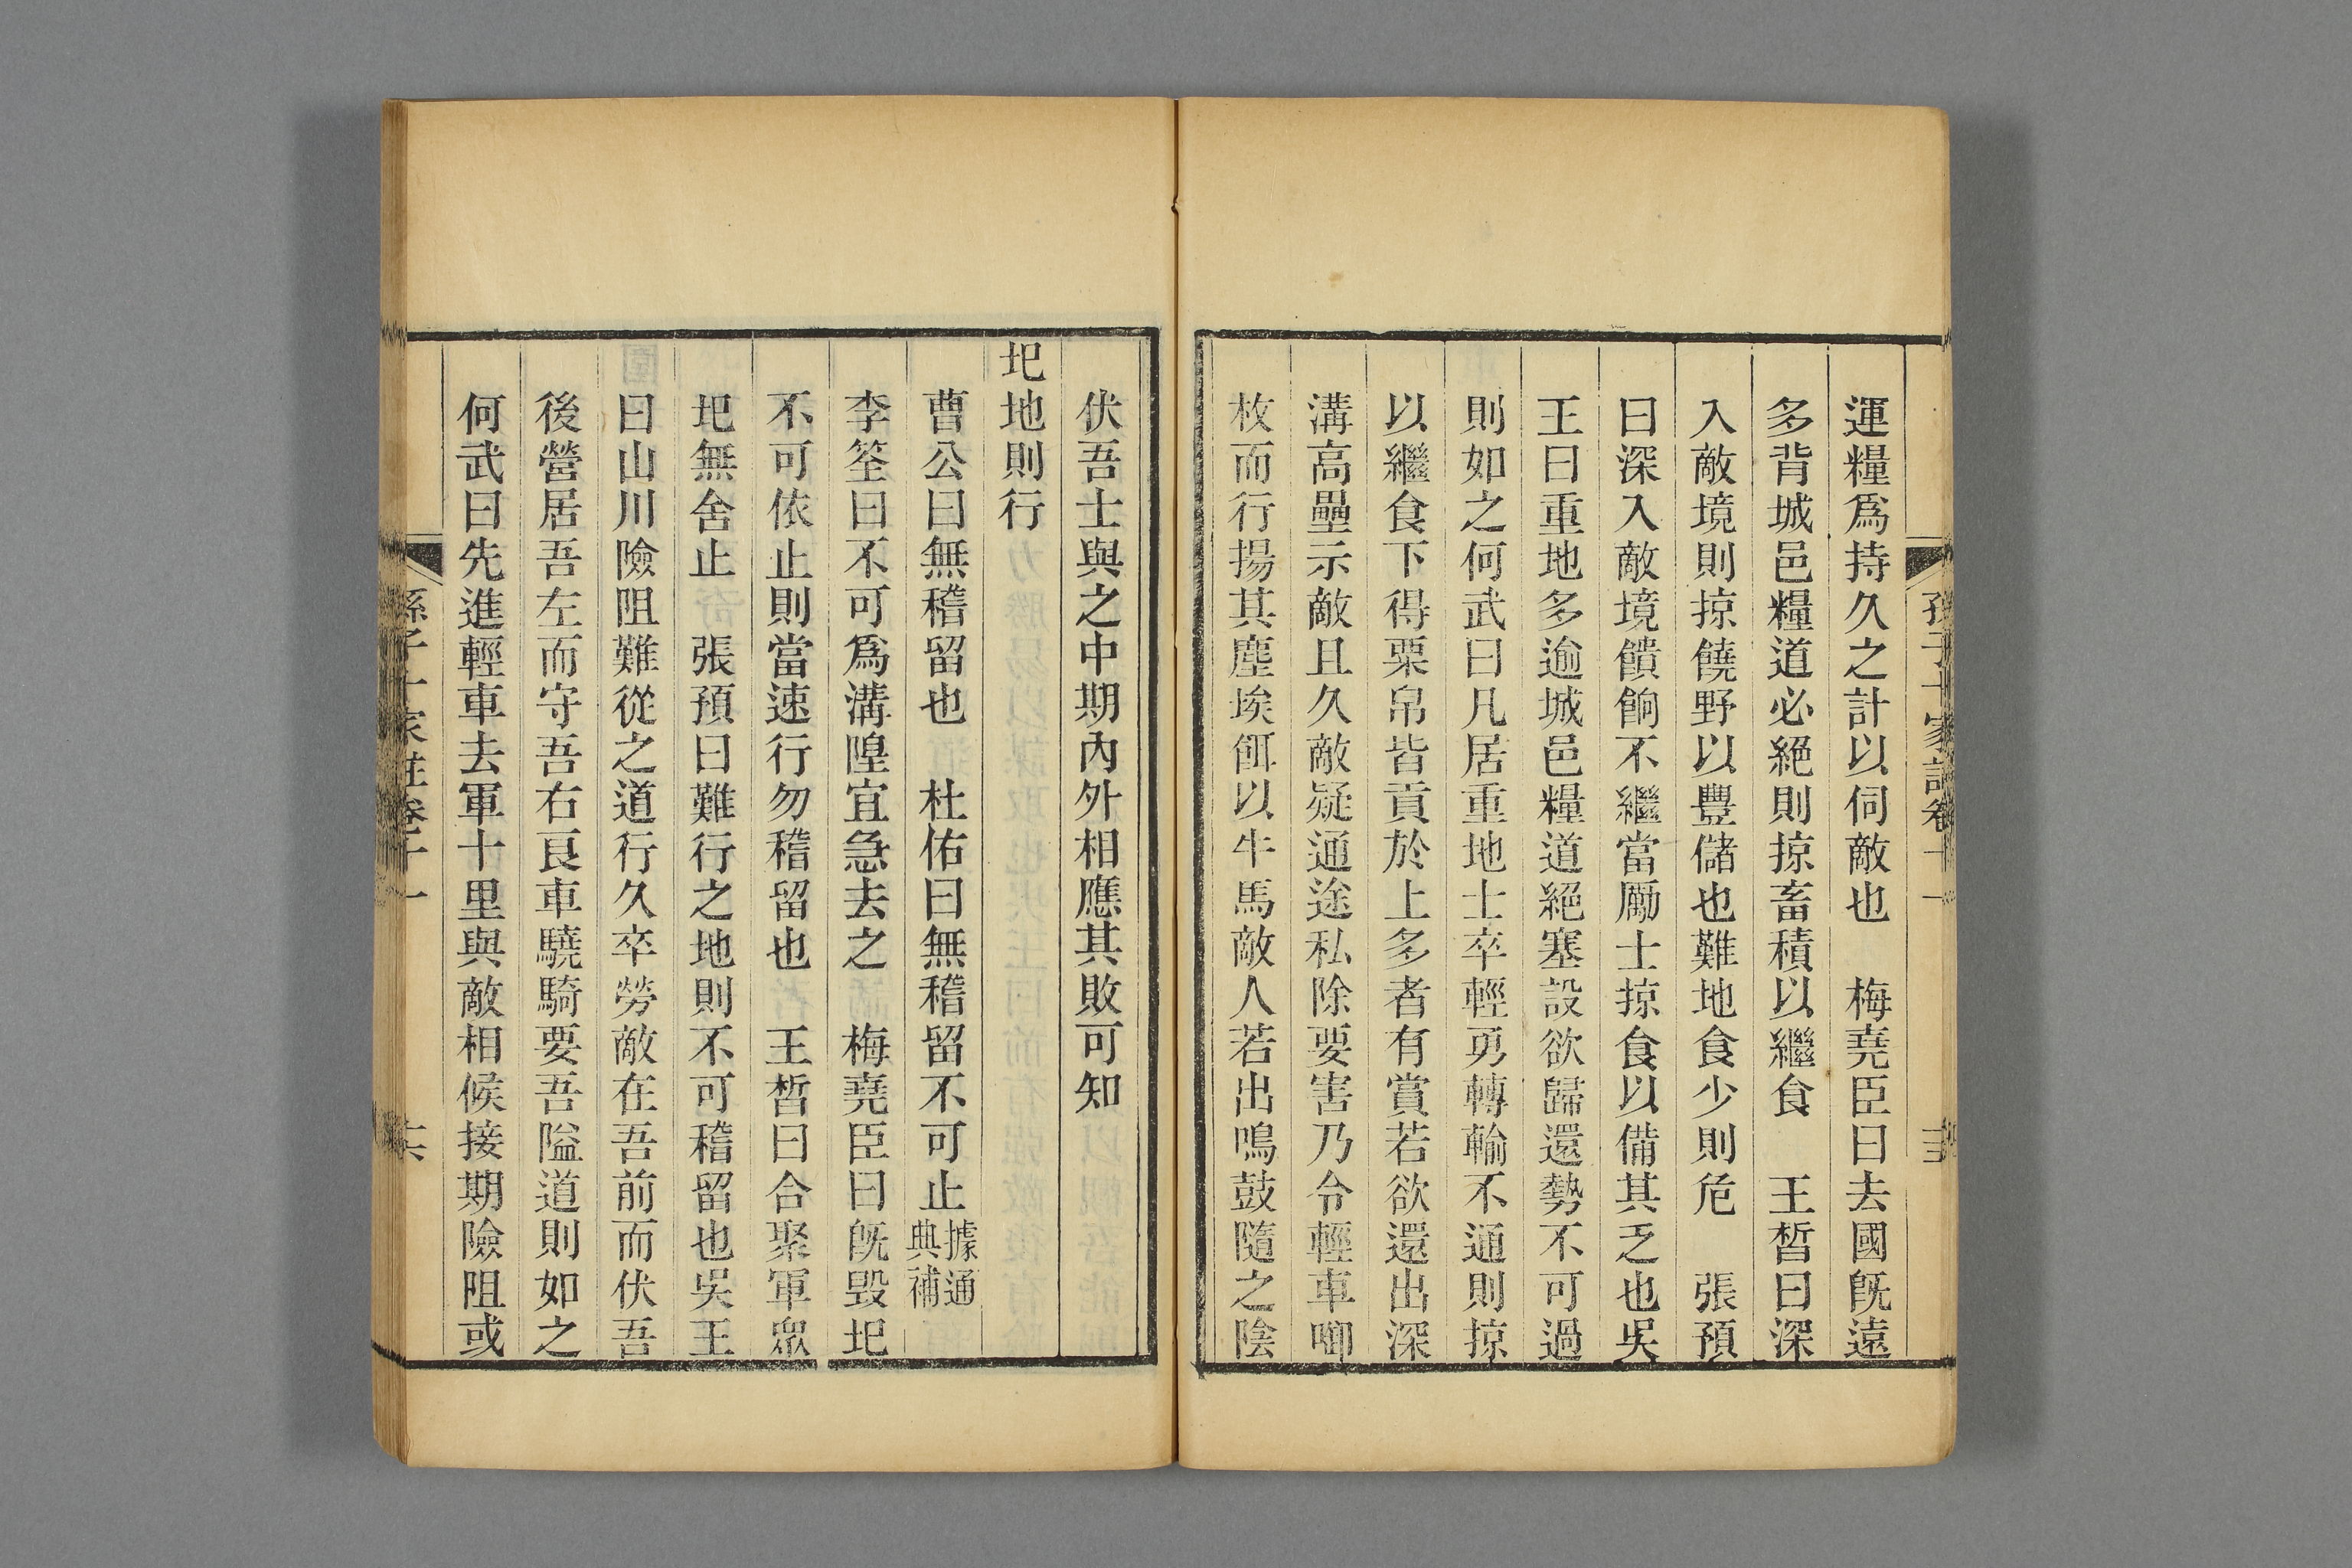 運糧爲持久之計以伺敵也　梅堯臣曰去國旣遠
多背城邑糧道必絕則掠畜積以繼食　王晳曰深
入敵境則掠饒野以豐儲也難地食少則危　張預
曰深入敵境饋餉不繼當勵士掠食以備其乏也吳
王曰重地多逾城邑糧道絕塞設欲歸還勢不可過
則如之何武曰凡居重地士卒輕勇轉輸不通則掠
以繼食下得粟帛皆貢於上多者有賞若欲還出深
溝高壘示敵且久敵疑通途私除要害乃令輕車啣
枚而行揚其塵埃餌以牛馬敵人若出鳴鼓隨之陰
伏吾士與之中期內外相應其敗可知
圯地則行
曹公曰無稽留也　杜佑曰無稽留不可止據通典補
李筌曰不可爲溝隍宜急去之　梅堯臣曰旣毀圯
不可依止則當速行勿稽留也　王晳曰合聚軍衆
圯無舍止　張預曰難行之地則不可稽留也吳王
曰山川險阻難從之道行久卒勞敵在吾前而伏吾
後營居吾左而守吾右良車驍騎要吾隘道則如之
何武曰先進輕車去軍十里與敵相候接期險阻或
孫子十家註卷十一
十六